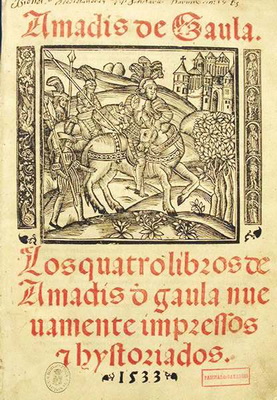 Amadis de Gaula.
Los quatro libros de
Amadis d̓ gaula nue
uamente impressos
⁊ hystoriados.
1533